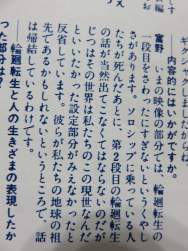 内容的はいかがですか。
富野 いまの映像の部分では、輪廻転生の
一段目をさわったにすぎないというくやし
さがあります。ソロシップに乗っている人
たちが死んだあとに、第2段目の輪廻転生
の話が当然出てこなくてはならないのだが
じつはその世界は私たちのこの現世なんだ
といいたかった設定部分がみえなかったと
反省しています。彼らが私たちの地球の祖
先であるかもしれないというところで、話
は帰結しているわけです。
── 輪廻転生と人の生きざまの表現したか
った部分は？